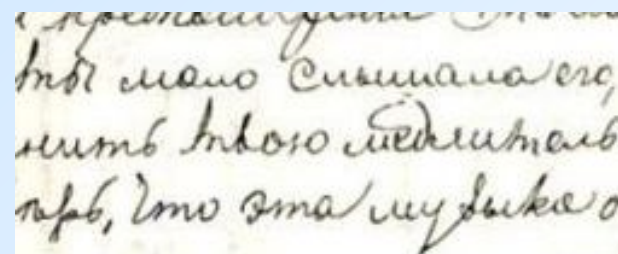 ты мало слышала его,
нить твою медлитель
терь, что эта музыка о